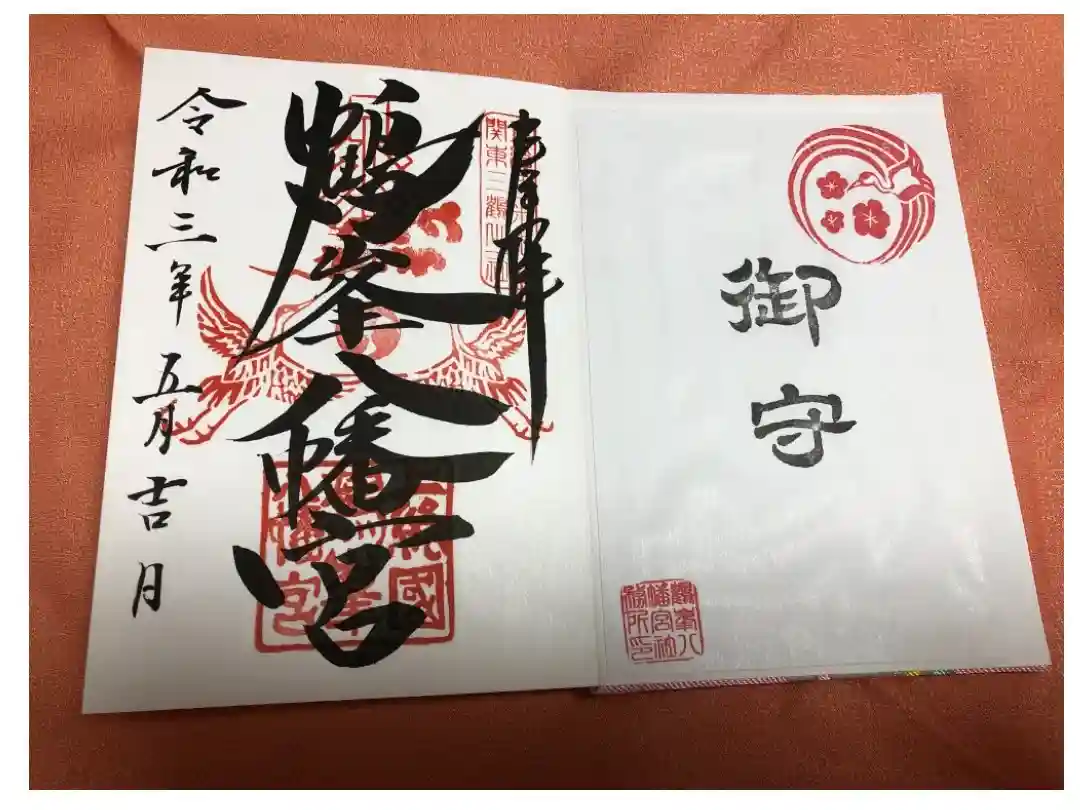 奉拝
関東三鶴八社
鶴峯八幡宮
令和三年
五月吉日
御守
鶴峯八
幡宮社
務所印